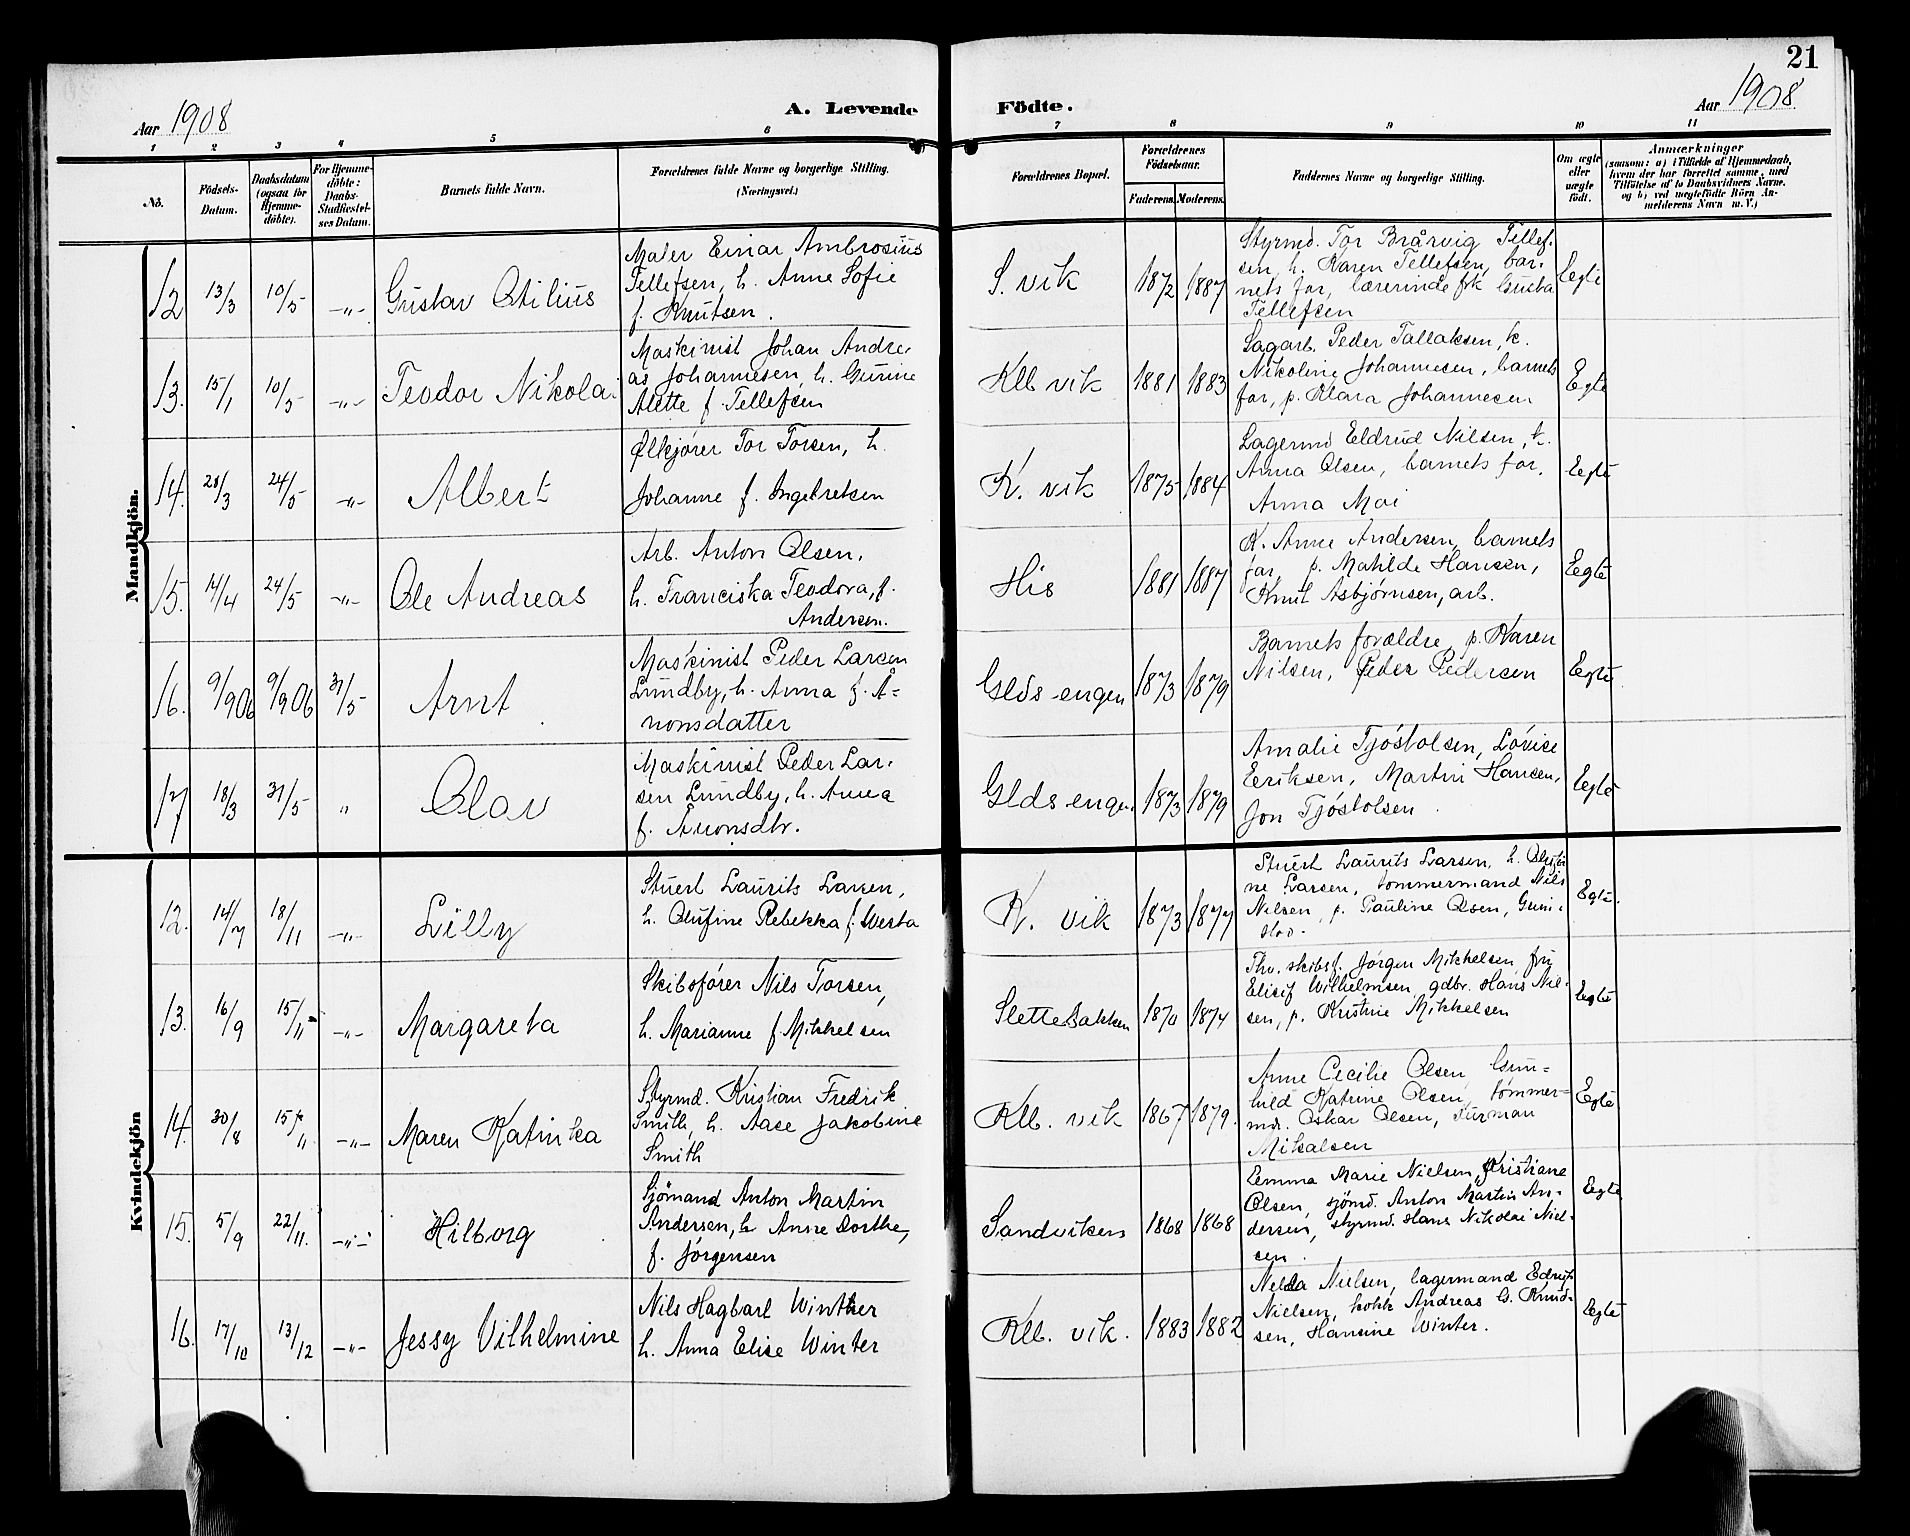 21
Aar 1908
A. Levende Födte.
Aar 1908
1 2 3 4 5 6 7 8 9 10 11
No.
Födsels-Datum.
Daabsdatum (ogsaa for Hjemme-döbte).
For Hjemme-döbte: Daabs-Stadfæstel-ses Datum.
Barnets fulde Navn.
Forældrenes fulde Navne og borgerlige Stilling.
(Næringsvei.)
Forældrenes Bopæl.
Forældrenes Födselsaar.
Faderens. Moderens.
Faddernes Navne og borgerlige Stilling.
Om ægte eller uægte födt.
Anmærkninger
(saasom: a) i Tilfælde af Hjemmedaab,
hvem der har forrettet samme, med
Tilföielse af to Daabsvidners Navne,
og b) ved uægtefödte Börn An-
melderens Navn m. V.)
Mandkjön.
12 13/3 10/5 -„- Gustav Otilius
Maler Einar Ambrosius
Tellefsen, h. Anne Sofie
f. Knutsen.
S. vik 1872 1887
Styrmd. Tor Brårvig Tellef-
sen, h. Karen Tellefsen, bar-
nets far, lærerinde frk Gusta
Tellefsen
Egte
13. 15/1 10/5 -„- Teodor Nikolai
Maskinist Johan Andre-
as Johannesen, h. Gurine
Alette f. Tellefsen
Klb vik 1881 1883
Sagarb. Peder Tallaksen, k.
Nikoline Johannesen, barnets
far, p. Klara Johannesen
Egte
14. 28/3 24/5 -„- Albert
Ølkjører Tor Torsen, h.
Johanne f. Ingebretsen
K. vik 1875 1884
Lagermd Eldrud Nilsen, k.
Anna Olsen, barnets far,
Anna Moi
Egte
15. 14/4 24/5 -„- Ole Andreas
Arb. Anton Olsen,
h. Franciska Teodora, f.
Andersen.
His 1881 1887
K. Anne Andersen, barnets
far, p. Matilde Hansen,
Knut Asbjørnsen, arb.
Egte
16. 9/9 06 9/9 06 31/5 Arnt
Maskinist Peder Larsen
Lundby, h. Anna f. A-
nonsdatter
Glds-engen 1873 1879
Barnets forældre, p. Karen
Nilsen, Peder Pedersen
Egte
17 18/3 31/5 „ Olav
Maskinist Peder Lar-
sen Lundby, h. Anna
f. Anonsdtr.
Glds engen 1873 1879
Amalie Tjöstolsen, Lovise
Eeriksen, Martin Hansen,
Jon Tjöstolsen.
Egte
Kvindekjön
12. 14/7 18/11 -„- Lilly
Stuert Laurits Larsen,
h. Olufine Rebekka f. Westa
K. vik 1873 1877
Stuert Laurits Larsen, h. Olufi-
ne Larsen, tømmermand Nils
Nilsen, p. Pauline Olsen, Grim-
stad.
Egte.
13. 16/9 15/11 -„- Margareta
Skibsfører Nils Torsen,
h. Marianne f. Mikkelsen
Slettebakken 1870 1874
Fhv. skibsf. Jørgen Mikkelsen, fru
Elisif Wilhelmsen, gdbr. Hans Nil-
sen, p. Kristine Mikkelsen
Egte
14. 30/8 15/11 -„- Maren Katinka
Styrmd. Kristian Fredrik
Smith, h. Aase Jakobine
Smith
Klb. vik 1867 1879.
Anne Cecilie Olsen, Gun-
hild Katrine Olsen, tømmer-
md. Oskar Olsen, Furman
Mikalsen
Egte
15. 5/9 22/11. -„- Hilborg
Sjömand Anton Martin
Andersen, h Anne Dorthe,
f. Jørgensen
Sandviken 1868 1868
Emma Marie Nielsen, Kristiane
Olsen, sjömd. Anton Martin An-
dersen, styrmd. Hans Nikolai Niel-
sen.
Egte
16. 17/10 13/12 -„- Jessy Vilhelmine
Nils Hagbart Winther
h. Anna Elise Winter
Klb. vik. 1883 1882
Nelda Nielsen, lagermand
Nielsen, kokk Andreas G. Knud-
sen, Hansine Winter.
Egte